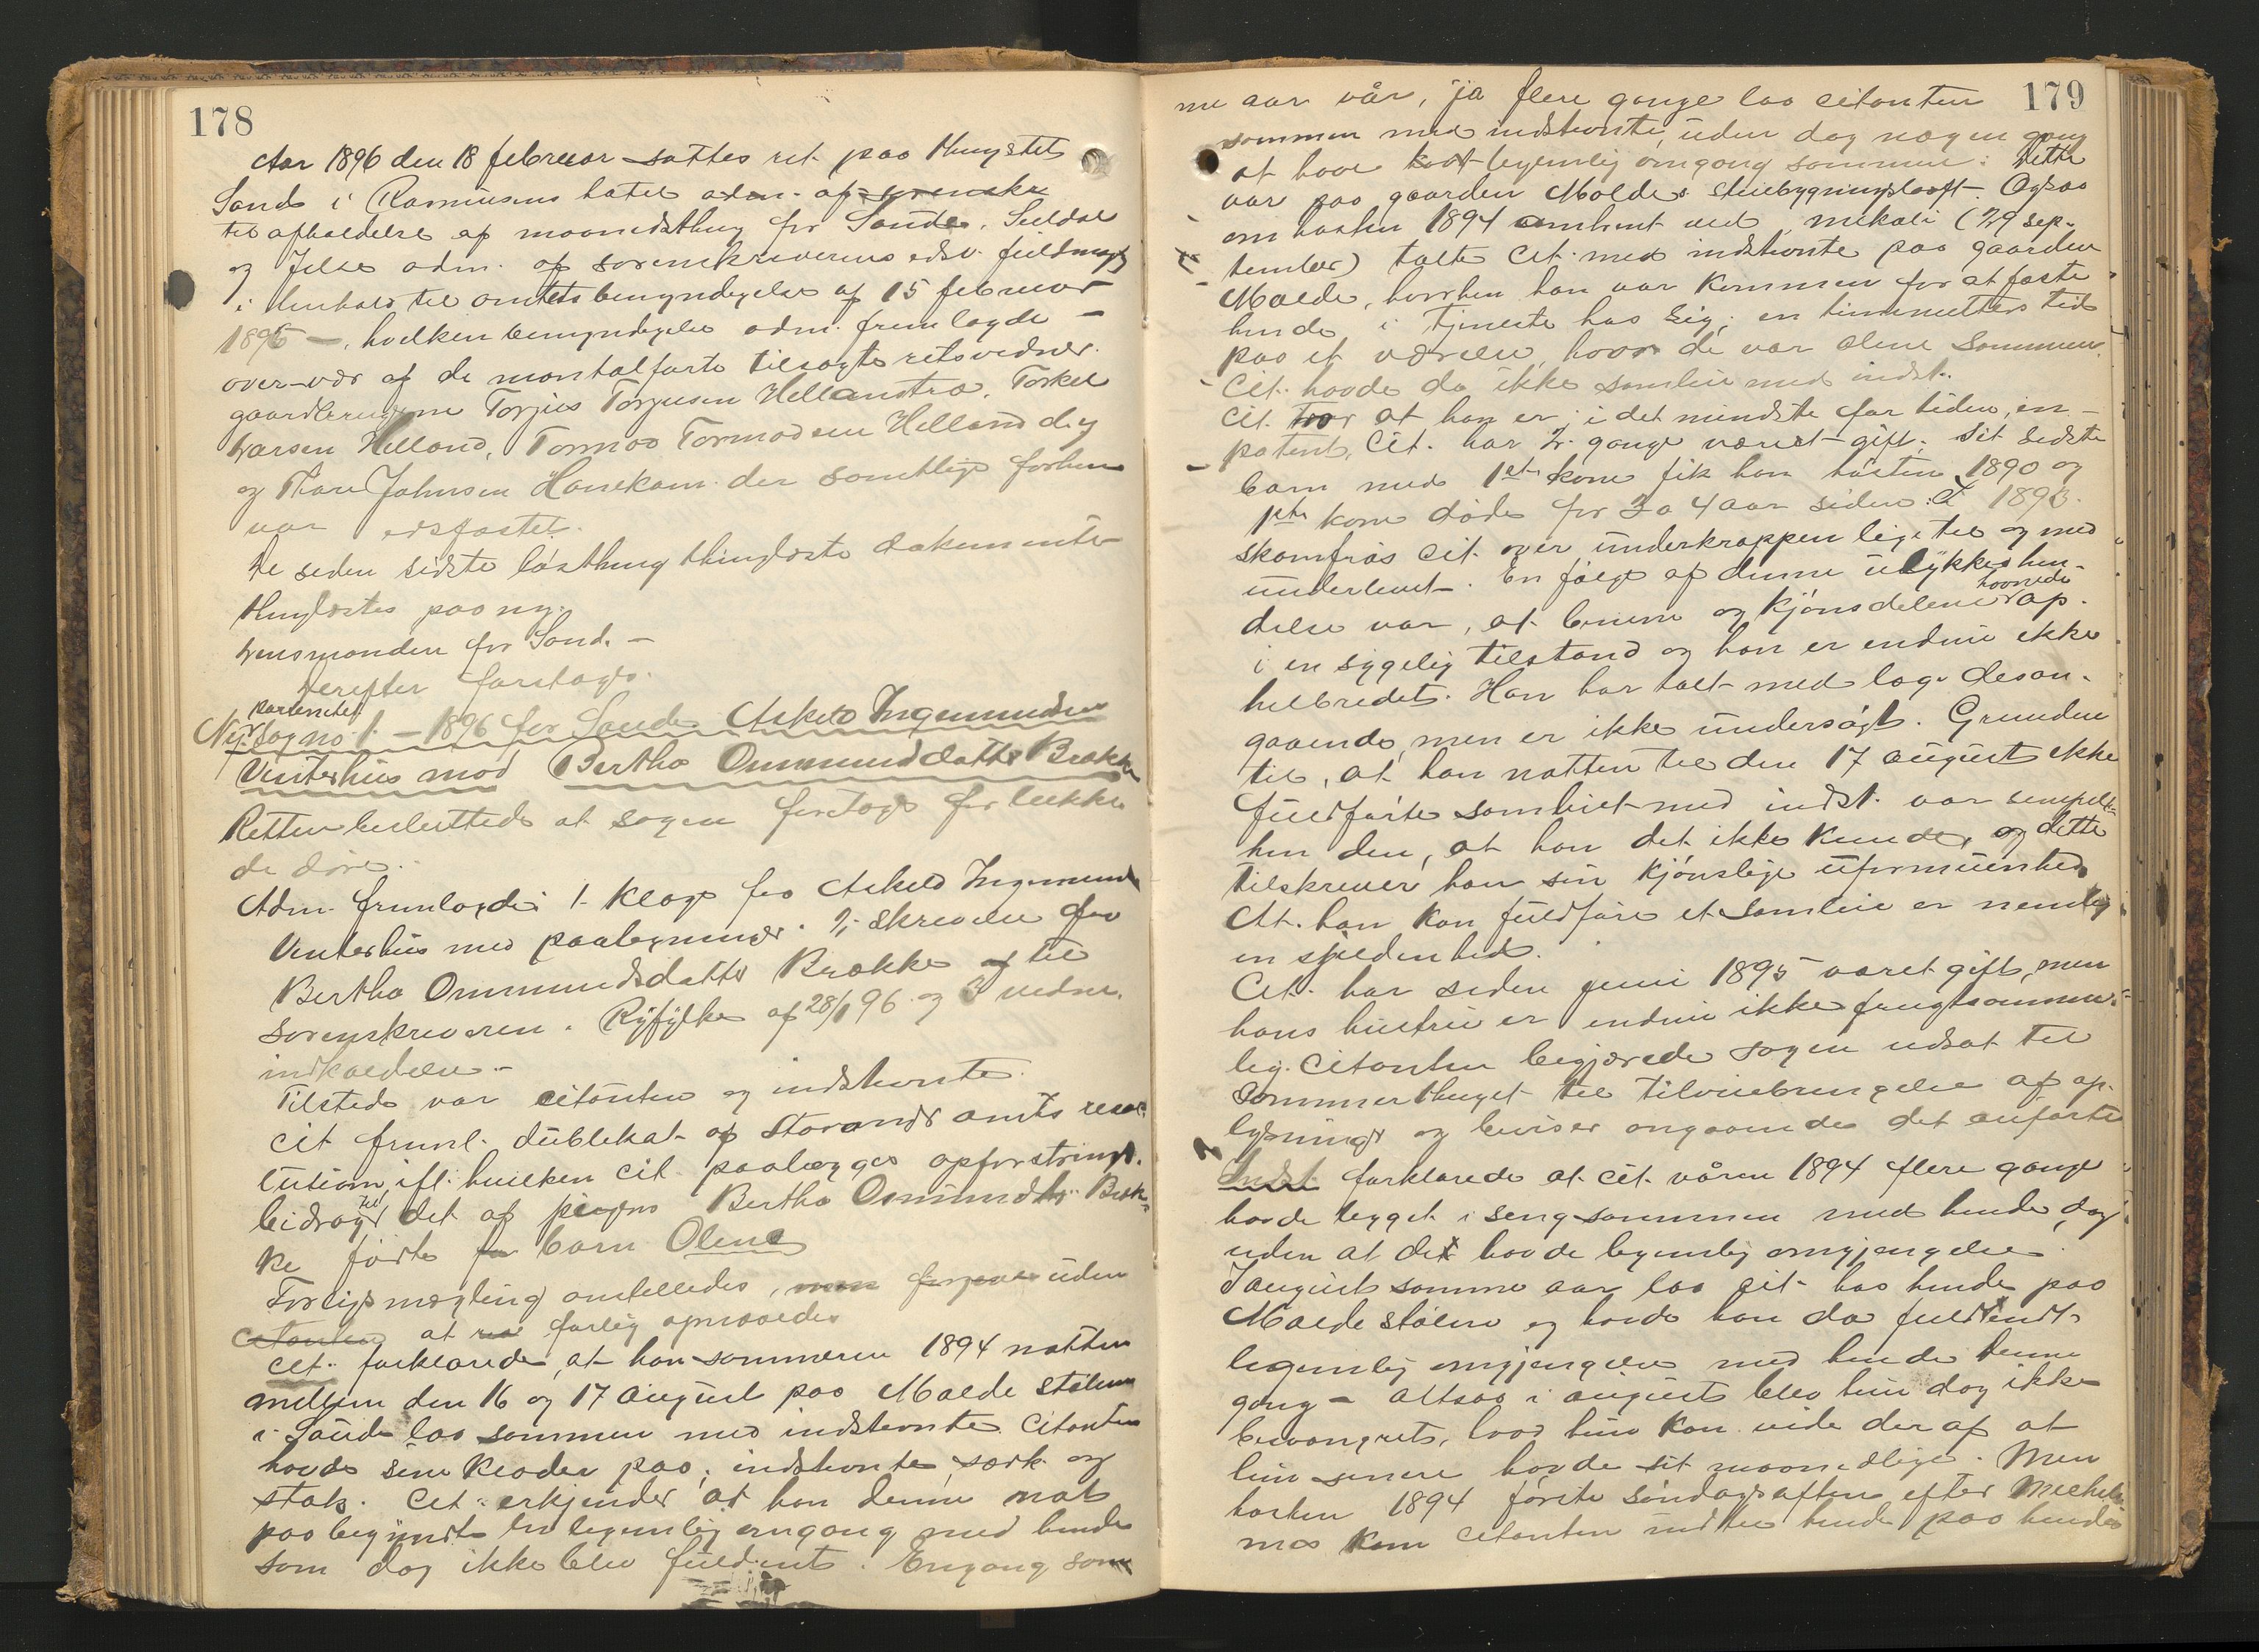 178
Aar 1896 den 18 februar sattes ret paa thingstedet
Sand i Rasmusens hotel adm. af sorenskr
til afholdelse af maanedsthing for Sande, Suldal
og Jelse adm. af sorenskriverens edsv. fuldmægt
i henhold til amtets bemyndigelse af 15 februar
1896 –, hvilken bemyndigelse adm. fremlagde –
over-vær af de mantalførte tilsagte retsvidner
gaardbrugerne Torjus Torjusen Hellandtræ, Torkel
Larsen Helland, Tormod Tormodsen Helland d.y
og Thore Johnsen Hanekam der samtlige forhen
var edfæstet.
De siden sidste løsthing thinglæste dokumenter
thinglæstes paa ny.
Lensmanden for Sand. –
Derefter foretages.
paternitets
Ny sag no 1. – 1896 for Sande Askild Ingemundsen
Vinterhus mod Bertha Ommunddatter Brække
Retten besluttede at sagen foretages for lukke
de døre.
Adm. fremlagde: 1. Klage fra Askild Ingemunds
Vinterhus med paategninger. 2; skrivelse fra
Bertha Ommundsdatter Brække til
sorenskriveren i Ryfylke af 28/1 96 og 3 vidne
indkaldelse. –
Tilstede var citanten og indstevnte.
Cit freml. dublikat af Stavanger amts reso
lution ifl. hvilken cit. paalægges opfostrings
bidrag til det af pigen Bertha Osmundsdtr. Bræk
ke fødte barn Olene
Forligsmægling anstilledes, men forgjæves uden
Citanten at forlig opnaaedes
Cit. forklarede, at han sommeren 1894 natten
mellem den 16 og 17 august paa Molde stølen
i Saude laa sammen med indstevnte. Citanten
havde sine klæder paa; indstevnte særk og
stak. Cit. erkjender at han denne nat
paabegyndte en legemlig omgang med hende
som dog ikke blev fuldendt. Engang som
179
me aar vår, ja flere gange laa citanten
sammen med indstevnte, uden dog nogen gang
at have havt legemlig omgang sammen. Dette
var paa gaarden Molde i stuebygningsloft. Ogsaa
om høsten 1894 omtrent ved mikali (29 sep-
tember) talte Cit. med indstevnte paa gaarden
Molde, hvorhen han var kommen for at fæste
hende i tjeneste hos sig; en timinutters tid
paa et værelse, hvor de var alene sammen.
Cit. havde da ikke samleie med indst.
Cit. tror at han er, i det mindste for tiden, im-
potent, Cit. har 2. gange været gift. Sit sidste
barn med 1ste kone fik han høsten 1890 og
1ste kone døde for 3 a 4 aar siden. I 1893.
skamfrøs cit. over underkroppen lige til og med
underlivet. En følge af denne ulykkeshen-
delse var, at benene og kjønsdelene hovnede op
i en sygelig tilstand og han er endnu ikke
helbredet. Han har talt med læge desan-
gaaende, men er ikke undersøgt. Grunden
til, at han natten til den 17 august ikke
fuldførte samleiet med indst. var simpelt
hen den, at han det ikke kunde, og dette
tilskriver han sin kjønslige uformuenhed
At han kan fuldføre et samleie er nemlig
en sjeldenhed.
Cit. har siden juni 1895 været gift, men
hans hustru er endnu ikke frugtsomme-
lig. Citanten begjærede sagen udsat til
Sommerthinget til tilveiebringelse af op-
lysninger og beviser angaaende det anførte
Indst. forklarede at cit. våren 1894 flere gange
havde ligget i seng sammen med hende, dog
uden at de havde legemlig omgjængelse.
I august samme aar laa cit. hos hende paa
Molde stølen og havde han da fuldendt
legemlig omgjængelse med hende denne
gang – altsaa i august blev hun dog ikke
besvangret, hvad hun kan vide deraf at
hun senere havde sit maanedlige. Men
høsten 1894 første søndagsaften efter Mickels
mes kom citanten ind til hende paa hendes